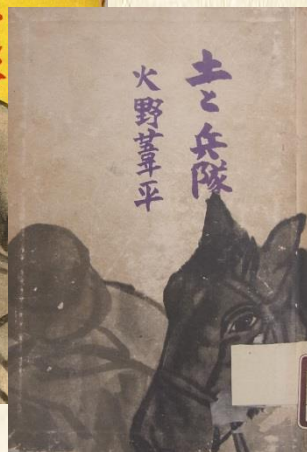 土と兵隊
火野葦平